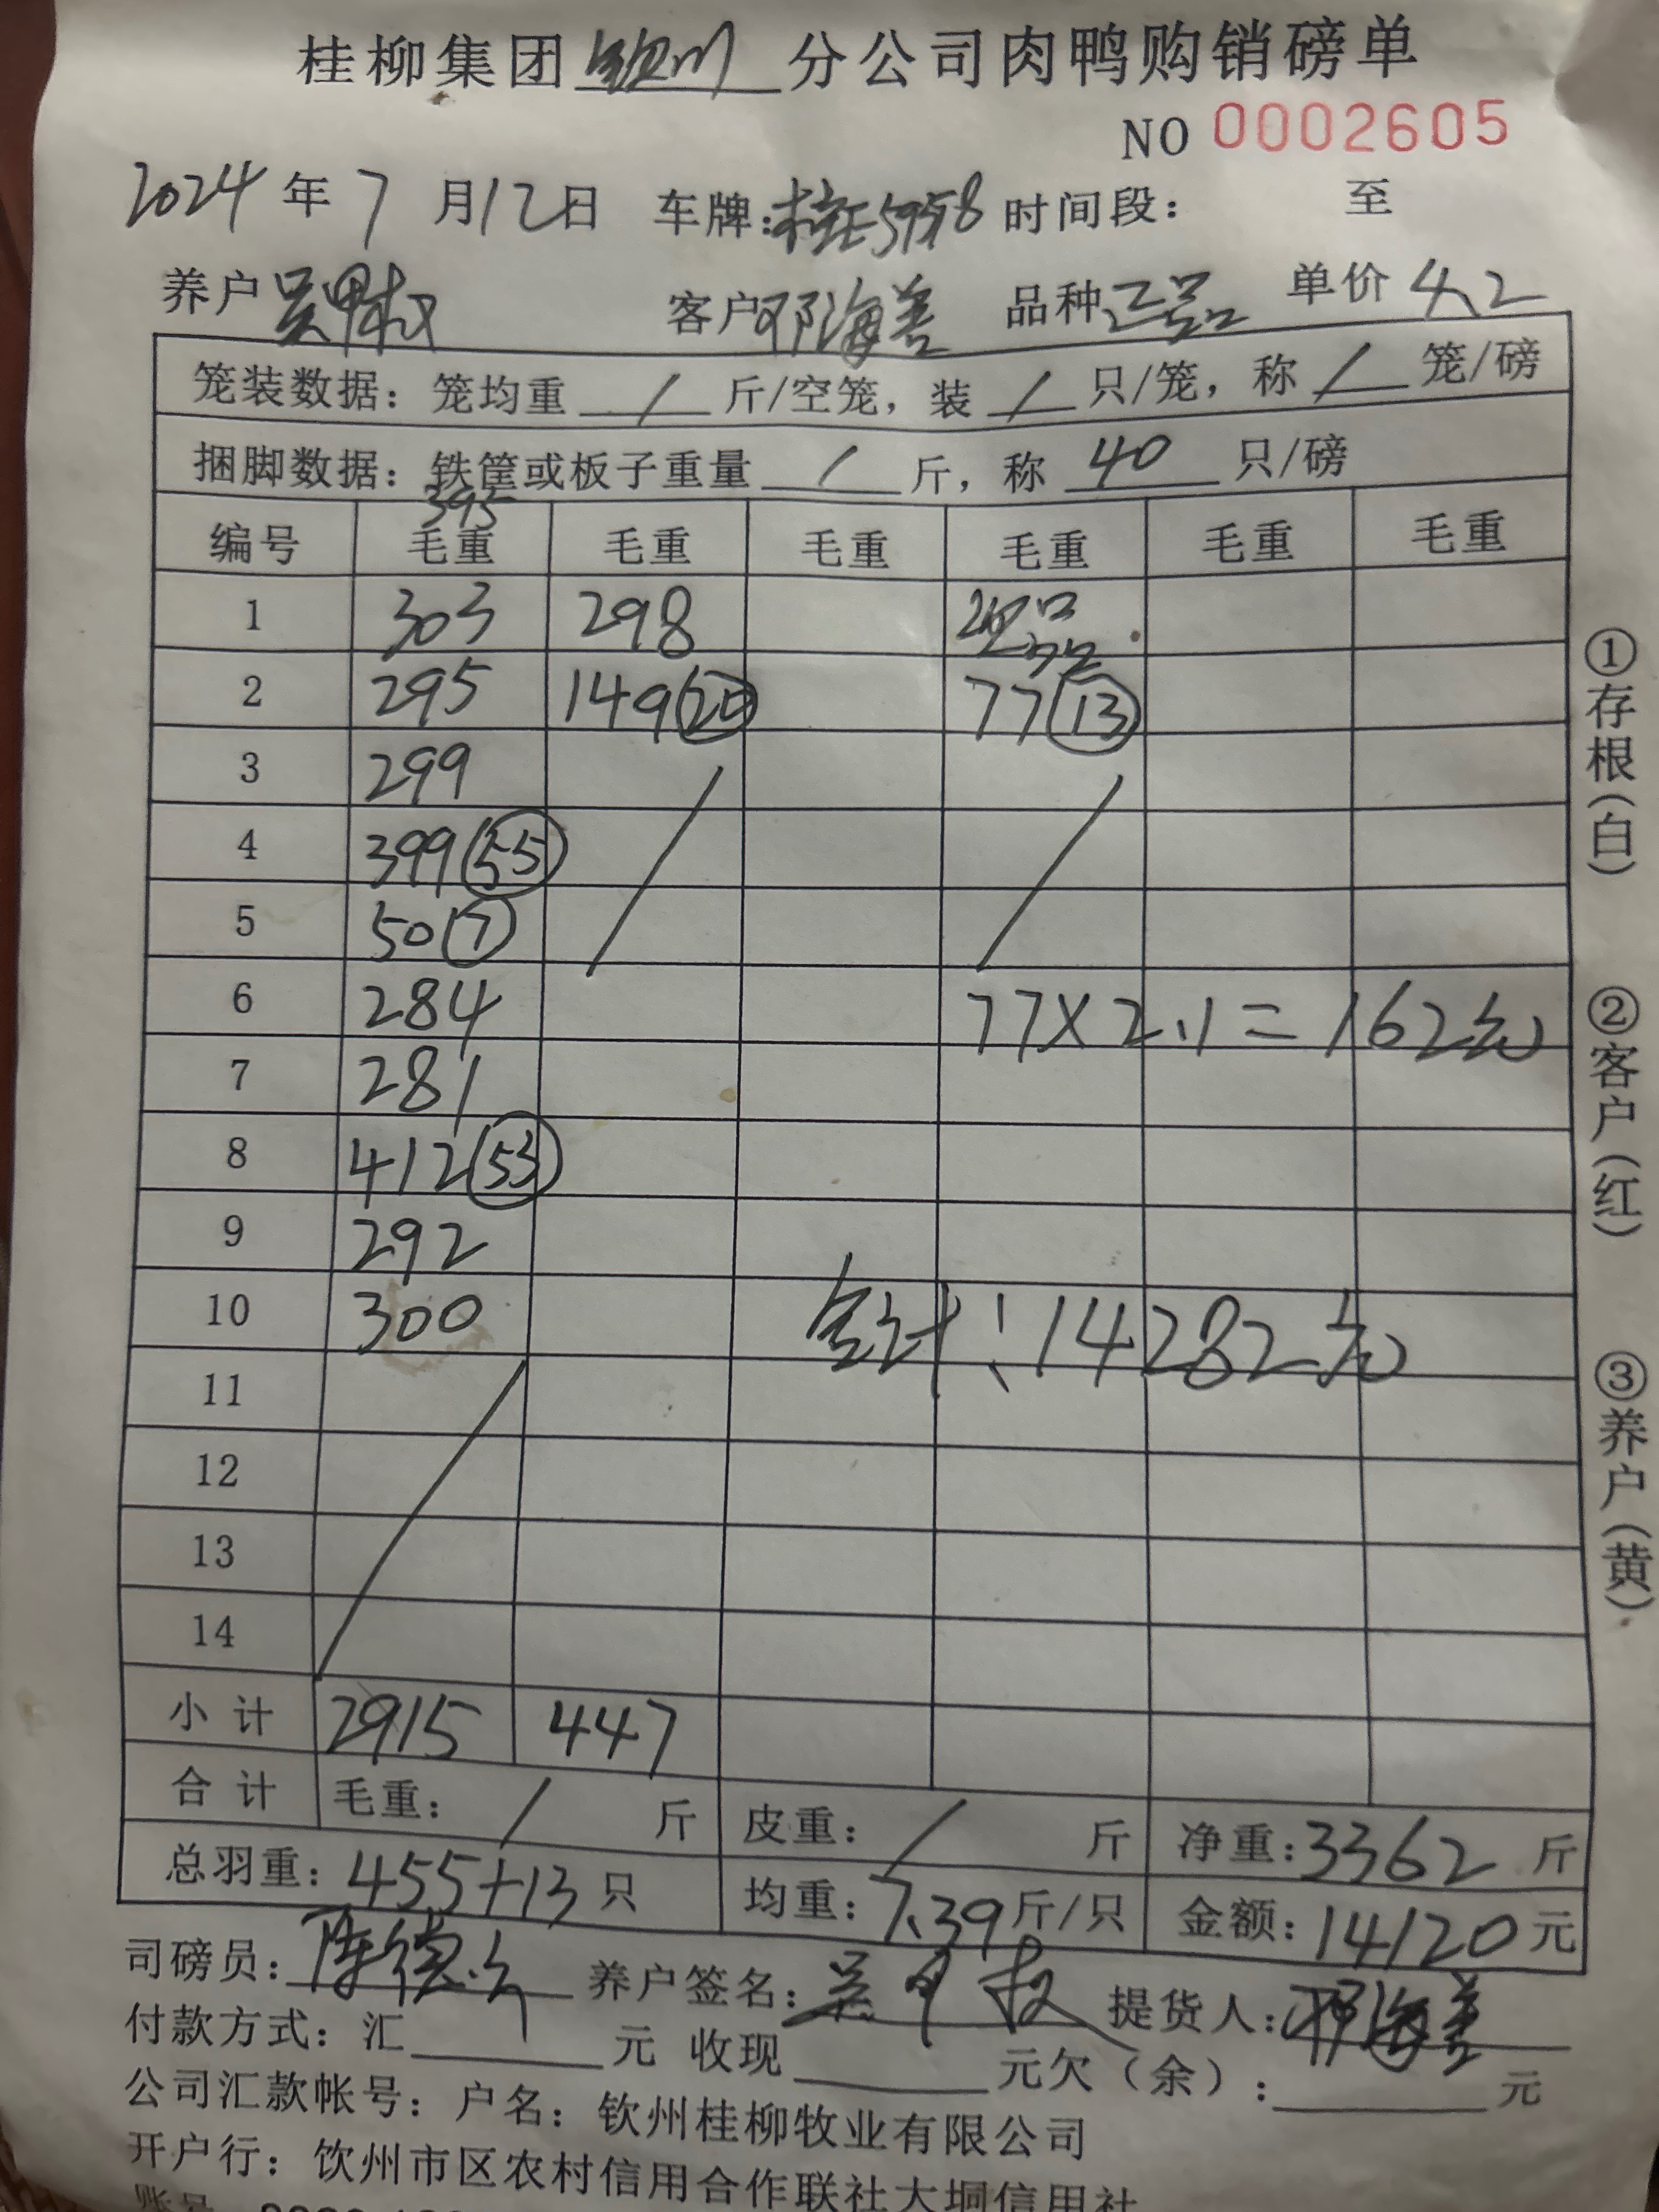 桂柳集团钦州分公司肉鸭购销磅单
NO 0002605
2024年7月12日 车牌: 时间段: 至
养户吴甲权 客户邓海善 品种正品 单价4.2
笼装数据: 笼均重 / 斤/空笼, 装 / 只/笼, 称 / 笼/磅
捆脚数据: 铁筐或板子重量 / 斤, 称 40 只/磅
395
编号 毛重 毛重 毛重 毛重 毛重 毛重
1 303 298
2 295 149(20) 77(13)
3 299
4 399(55)
5 50(7)
6 284 77×2.1=162元
7 281
8 412(53)
9 292
10 300 合计:14282元
11
12
13
14
小计 2915 447
合计 毛重: / 斤 皮重: / 斤 净重:3362斤
总羽重:455+13只 均重:7.39斤/只 金额:14120元
司磅员: 养户签名:吴甲权 提货人:邓海善
付款方式: 汇 元 收现 元欠(余): 元
公司汇款帐号: 户名: 钦州桂柳牧业有限公司
开户行: 钦州市区农村信用合作联社大垌信用社
①存根(白)
②客户(红)
③养户(黄)